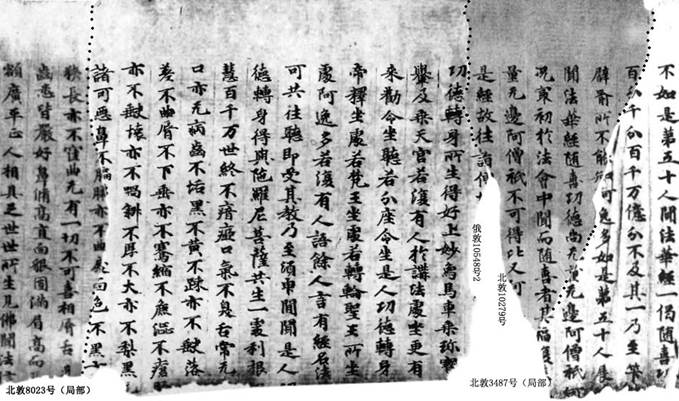 不如是第五十人聞法華經一偈隨喜功
百分千分百千万億分不及其一乃至筭
辟喻所不能知阿逸多如是第五十人展
聞法華經隨喜功德尚无量无邊阿僧祇何
况冣初於法會中聞而隨喜者其福復
量无邊阿僧祇不可得比又
是經故往詣僧
功德轉身所生得好上妙象馬車乘珍寶
轝及乘天宮若復有人於講法處坐更有
來勸令坐聽若分座令坐是人功德轉身
帝釋坐處若梵王坐處若轉輪聖王所坐
處阿逸多若復有人語餘人言有經名法
可共往聽即受其教乃至須臾間聞是人
德轉身得與陁羅尼菩薩共生一處利根
慧百千万世終不瘖瘂口氣不臭舌常无
口亦无病齒不垢黑不黃不踈亦不缺落
差不曲脣不下垂亦不褰縮不麁澁不瘡
亦不缺壞亦不喎斜不厚不大亦不梨黑
諸可惡鼻不亦不曲戾面色不黑
狹長亦不窪曲无有一切不可喜相脣舌
齒悉皆嚴好鼻脩高直面貌圓滿眉高而
額廣平正人相具足世世所生見佛聞法
俄敦10548号2
北敦10279号
北敦3487号（局部）
北敦8023号（局部）